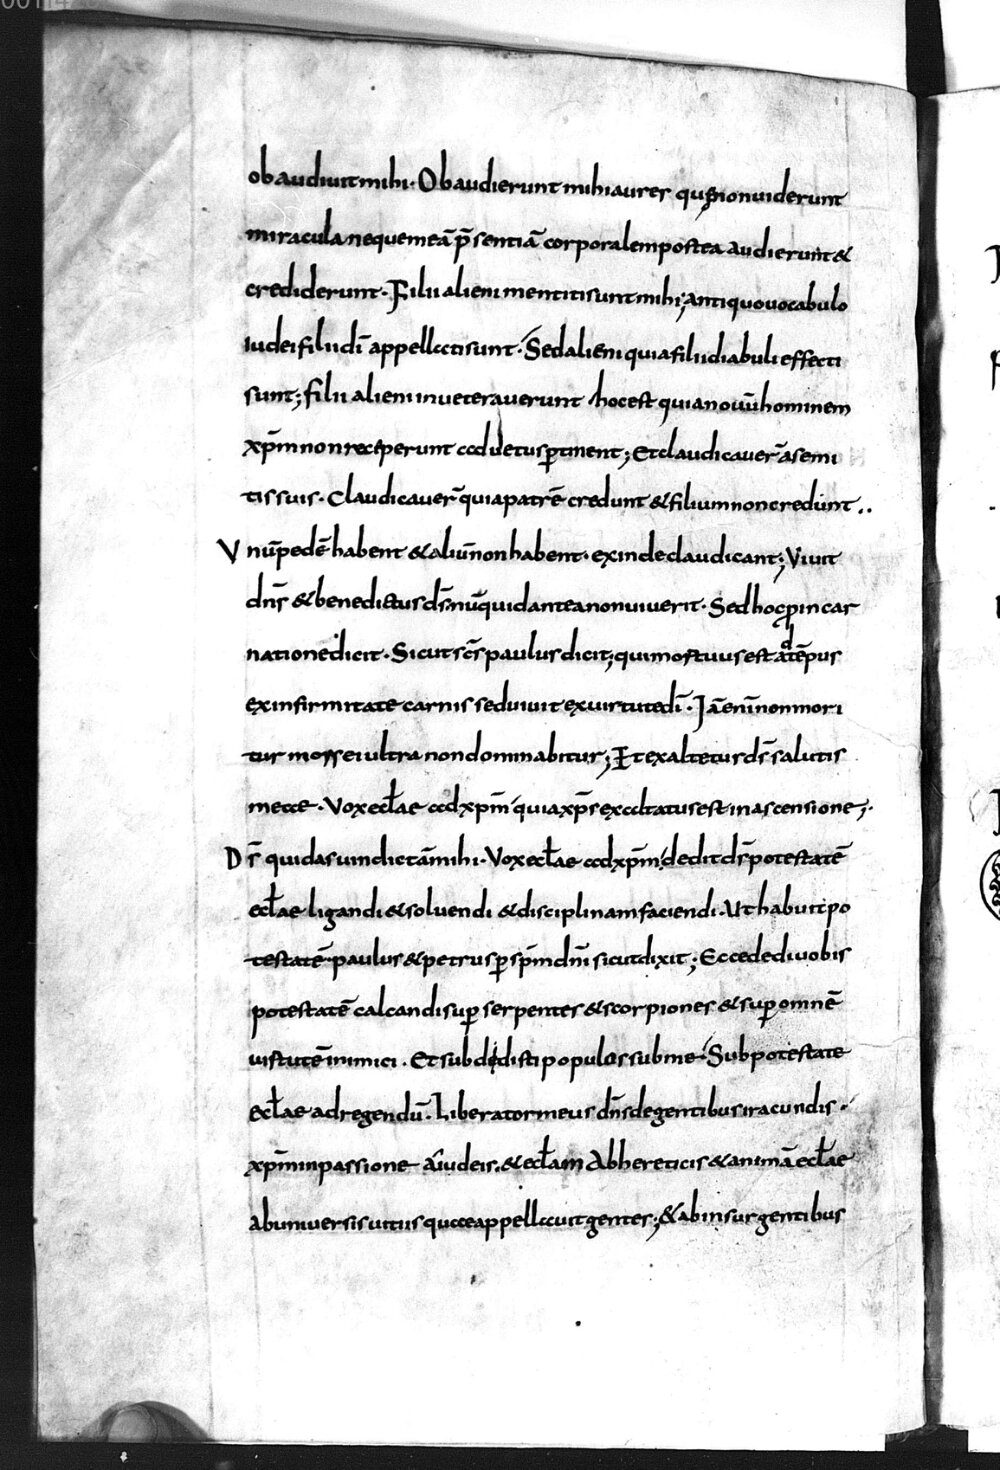 obaudiuit mihi· Obaudierunt mihi aures quę non uiderunt
miracula neque meā p̄sentiā corporalem postea audierunt &
crediderunt· Filii alieni mentiti sunt mihi; antiquo uocabulo
iudei filii dī appellati sunt· Sed alieni quia filii diabuli effecti
sunt; filii alieni inueterauerunt hoc est quia nouū hominem
xp̄m non receperunt ad uetus ꝑtinent; Et claudicauer̄ a semi
tis suis· Claudicauer̄ quia patrē credunt & filium non credunt..
Vnū pedē habent & aliū non habent· exinde claudicant; Viuit
dn̄s & benedictus ds̄ nūquid antea non uiuerit· Sed hoc ꝓ incar
natione dicit· Sicut sc̄s paulus dicit; qui mortuus est ad tēpus
ex infirmitate carnis sed uiuit ex uirtute dī· Jā enī non mori
tur mors ei ultra non dominabitur; Et exaltetur ds̄ salutis
meae· Vox ecłae ad xp̄m quia xp̄s exaltatus est in ascensione;·
Ds̄ qui das uindictā mihi· Vox ecłae ad xp̄m dedit ds̄ potestatē
ecłae ligandi & soluendi & disciplinam faciendi· Ut habuit po
testatē paulus & petrus ꝑ sp̄m dn̄i sicut dixit; Ecce dedi uobis
potestatē calcandi suꝑ serpentes & scorpiones & suꝑ omnē
uirtutē inimici· Et subdidisti populos sub me· Sub potestate
ecłae ad regendū· Liberator meus dn̄s de gentibus iracundis·
xp̄m in passione a iudeis· & ecłam ab hereticis & animā ecłae
ab uniuersis uitiis quae appellauit gentes; & ab insurgentibus